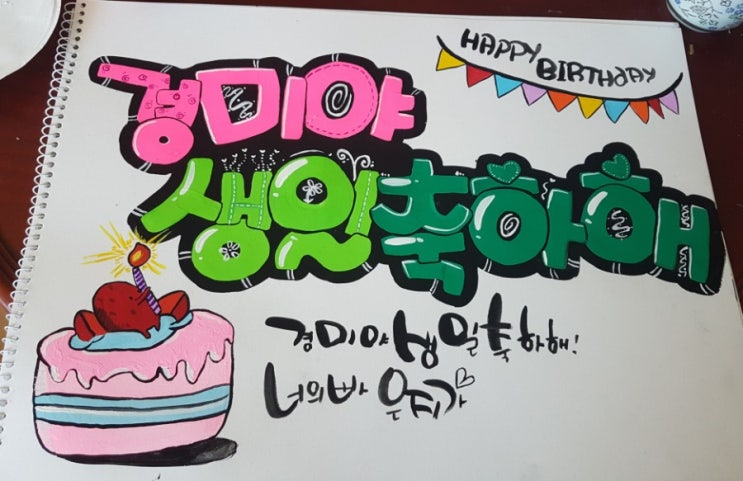 HAPPY BIRTHdAY
경미야
생일축하해
경미야 생일축하해!
너의빠